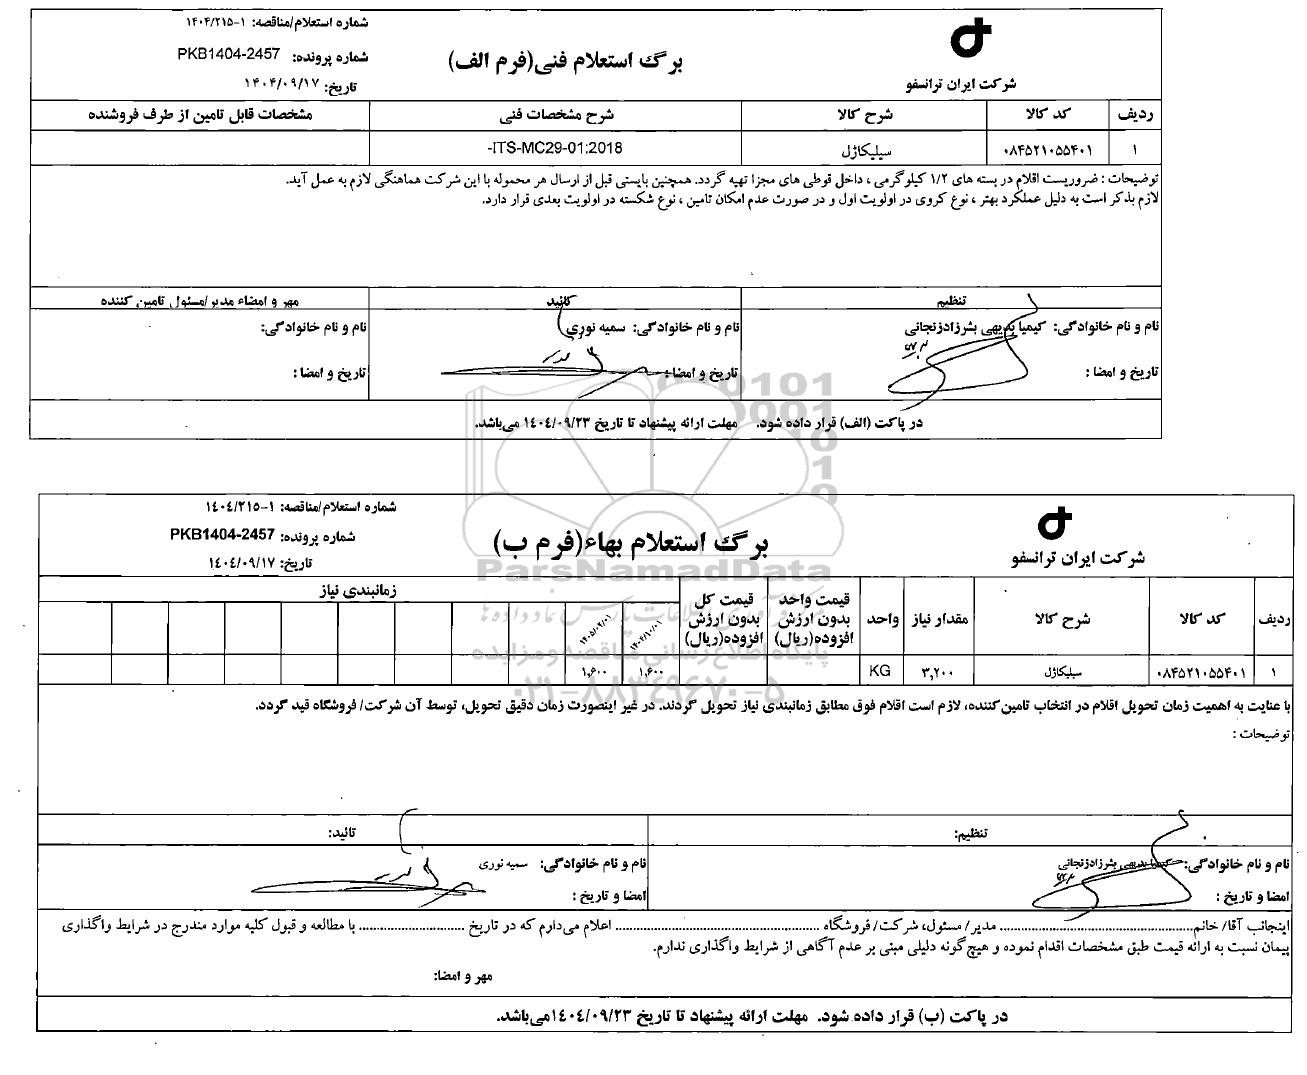 شرکت ایران ترانسفو
برگ استعلام فنی(فرم الف)
شماره استعلام/مناقصه: ۱-۱۴۰۴/۲۱۵
شماره پرونده: PKB1404-2457
تاریخ: ۱۴۰۴/۰۹/۱۷
ردیف کد کالا شرح کالا شرح مشخصات فنی مشخصات قابل تامین از طرف فروشنده
۱ ۰۸۴۵۲۱۰۵۵۴۰۱ سیلیکاژل -ITS-MC29-01:2018
توضیحات : ضروریست اقلام در بسته های ۱/۲ کیلوگرمی ، داخل قوطی های مجزا تهیه گردد. همچنین بایستی قبل از ارسال هر محموله با این شرکت هماهنگی لازم به عمل آید.
لازم بذکر است به دلیل عملکرد بهتر ، نوع کروی در اولویت اول و در صورت عدم امکان تامین ، نوع شکسته در اولویت بعدی قرار دارد.
تنظیم تائید مهر و امضاء مدیر/مسئول تامین کننده
نام و نام خانوادگی: کیمیا بدیهی بشرزادزنجانی نام و نام خانوادگی: سمیه نوری نام و نام خانوادگی:
تاریخ و امضا : تاریخ و امضا : تاریخ و امضا :
در پاکت (الف) قرار داده شود. مهلت ارائه پیشنهاد تا تاریخ ۱۴۰۴/۰۹/۲۳ می‌باشد.
شرکت ایران ترانسفو
برگ استعلام بهاء(فرم ب)
شماره استعلام/مناقصه: ۱-۱۴۰٤/۲۱۵
شماره پرونده: PKB1404-2457
تاریخ: ۱٤۰٤/۰۹/۱۷
ParsNamadData
پایگاه اطلاع رسانی مناقصه و مزایده
۰۲۱-۸۸۳۴۹۶۷۰-۵
ردیف کد کالا شرح کالا مقدار نیاز واحد قیمت واحد بدون ارزش افزوده(ریال) قیمت کل بدون ارزش افزوده(ریال) زمانبندی نیاز
۱۴۰۴/۱۰/۰۱ ۱۴۰۵/۰۲/۰۱
۱ ۰۸۴۵۲۱۰۵۵۴۰۱ سیلیکاژل ۳,۲۰۰ KG ۱,۶۰۰ ۱,۶۰۰
با عنایت به اهمیت زمان تحویل اقلام در انتخاب تامین‌کننده، لازم است اقلام فوق مطابق زمانبندی نیاز تحویل گردند. در غیر اینصورت زمان دقیق تحویل، توسط آن شرکت/ فروشگاه قید گردد.
توضیحات :
تنظیم: تائید:
نام و نام خانوادگی: کیمیا بدیهی بشرزادزنجانی نام و نام خانوادگی: سمیه نوری
امضا و تاریخ : امضا و تاریخ :
اینجانب آقا/ خانم............................ مدیر/ مسئول، شرکت/ فروشگاه ............................ اعلام می‌دارم که در تاریخ ............................ با مطالعه و قبول کلیه موارد مندرج در شرایط واگذاری
پیمان نسبت به ارائه قیمت طبق مشخصات اقدام نموده و هیچ‌گونه دلیلی مبنی بر عدم آگاهی از شرایط واگذاری ندارم.
مهر و امضا:
در پاکت (ب) قرار داده شود. مهلت ارائه پیشنهاد تا تاریخ ۱٤۰٤/۰۹/۲۳می‌باشد.